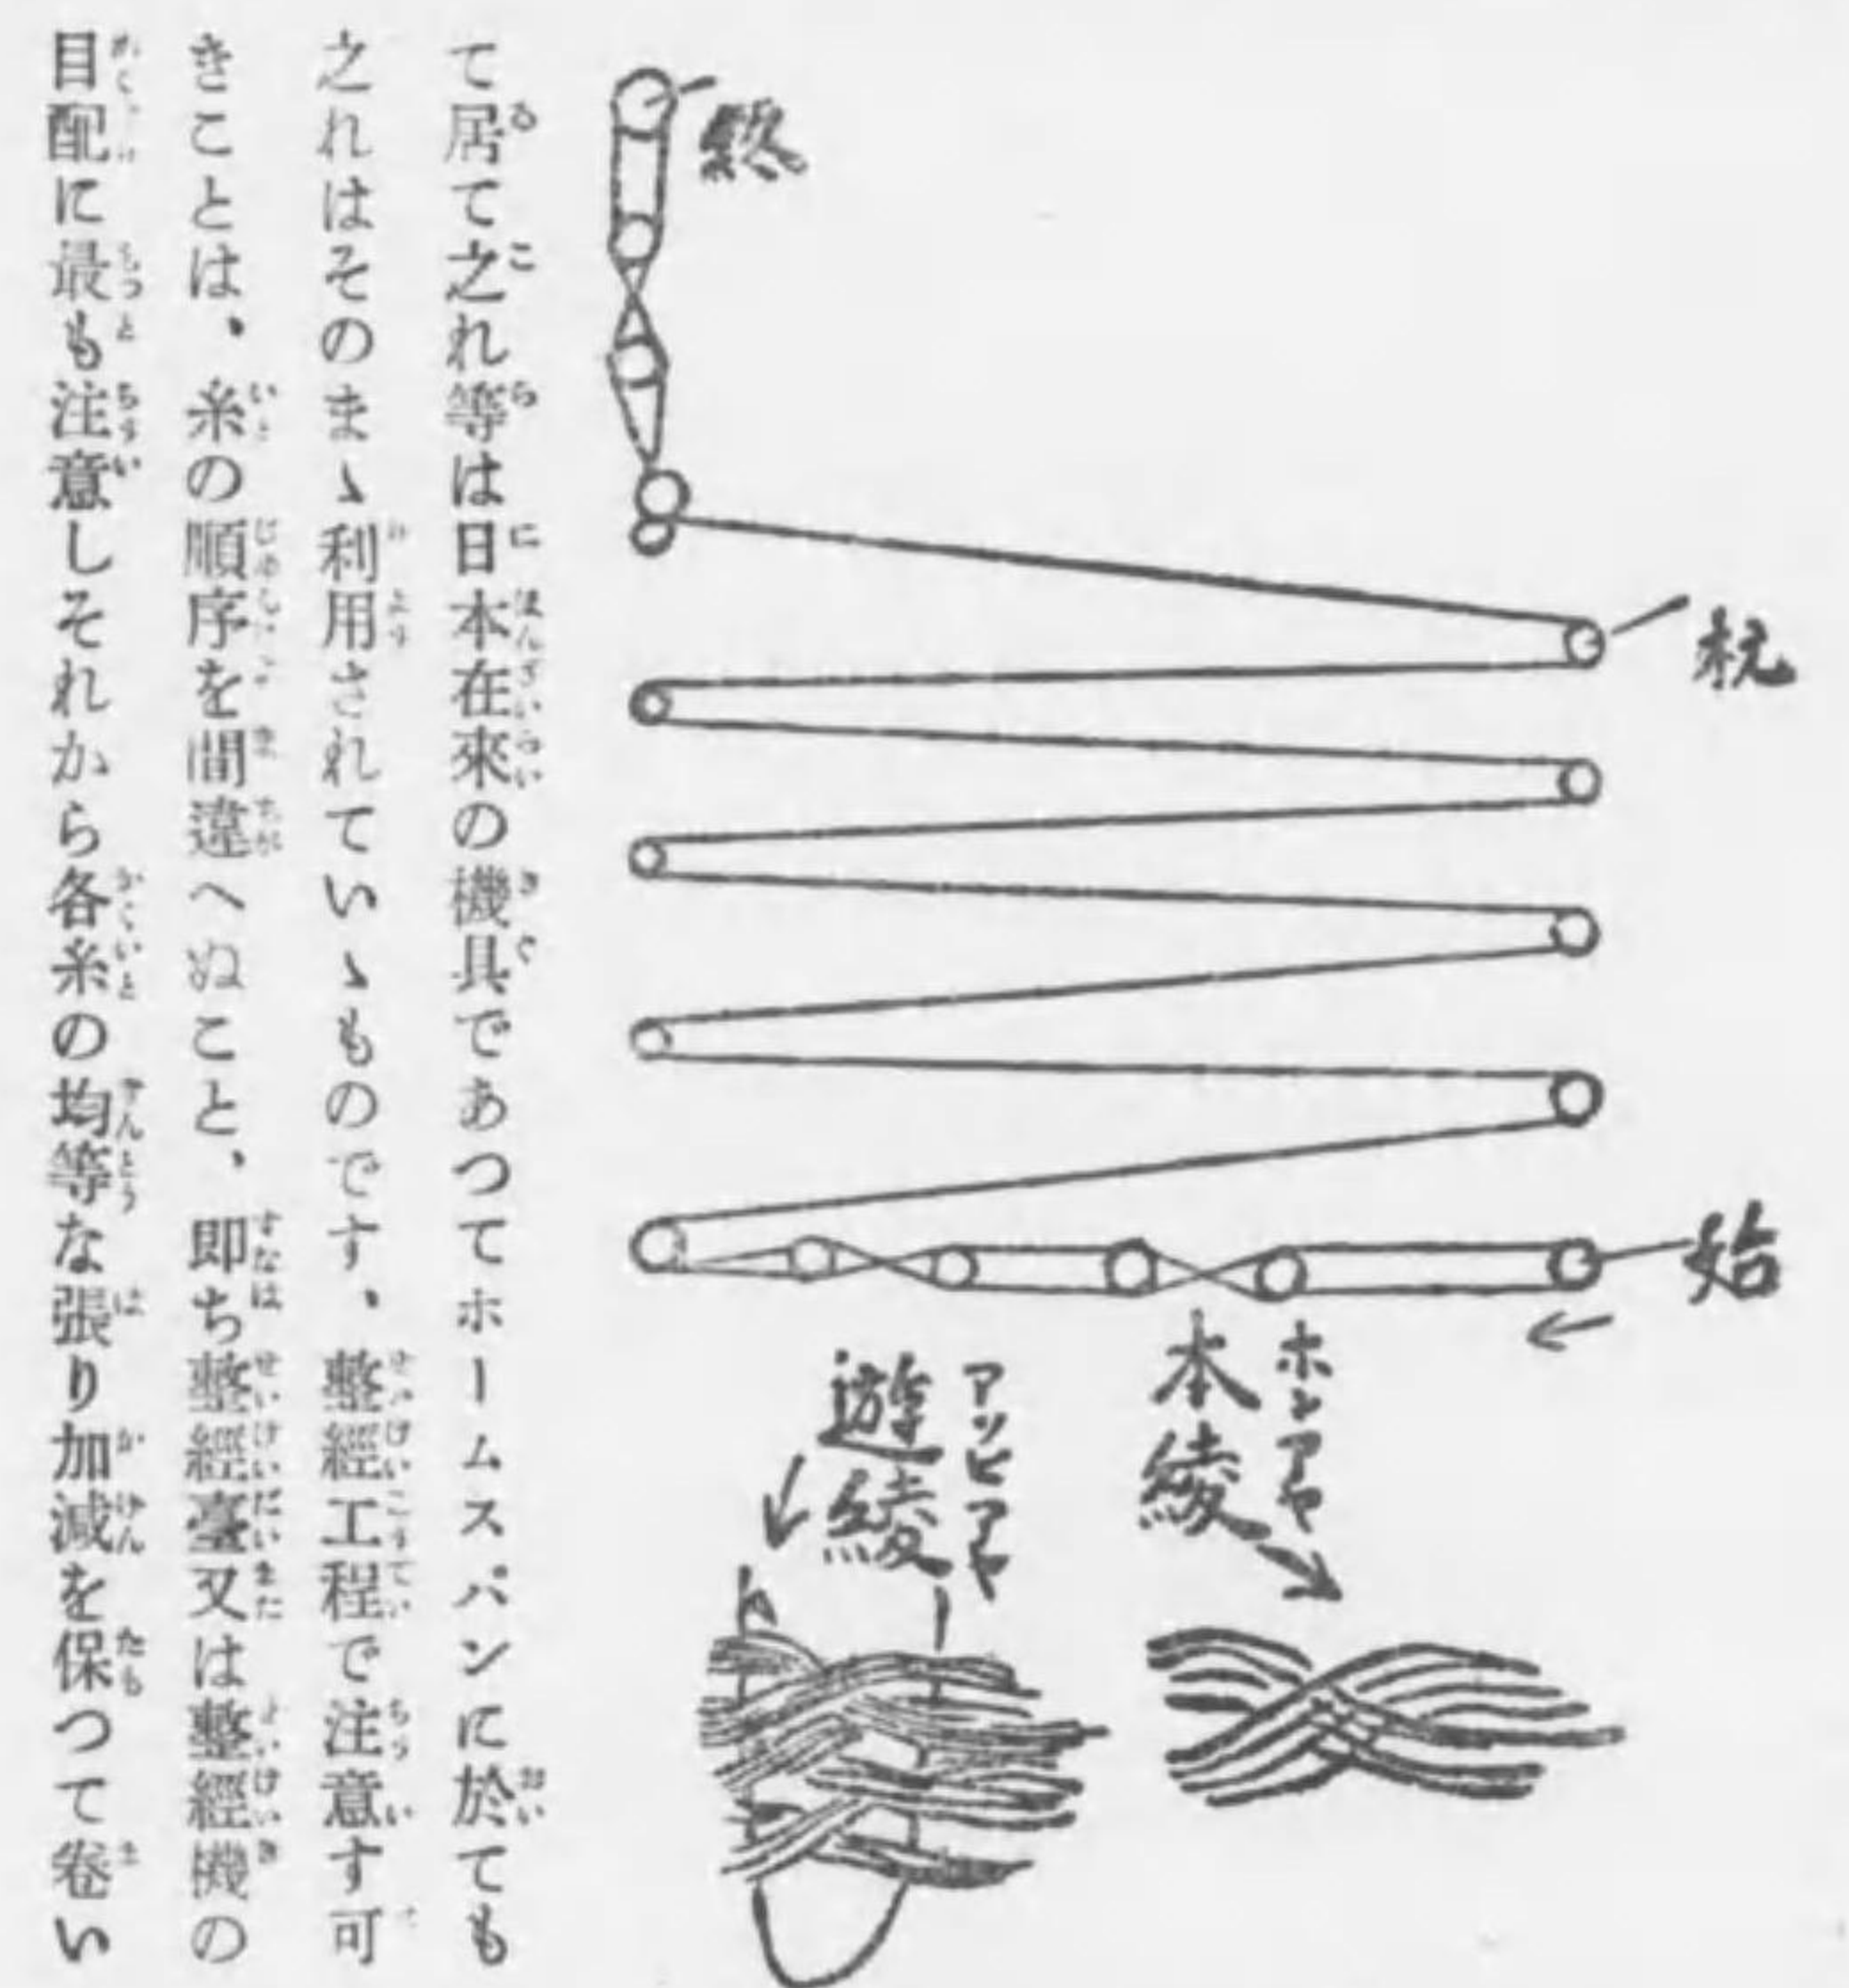 終
杭
始
ホンアヤ
本綾
アソビアヤ
遊綾
て居て之れ等は日本在來の機具であつてホームスパンに於ても
之れはそのまゝ利用されていゝものです、整經工程で注意す可
きことは、糸の順序を間違へぬこと、即ち整經臺又は整經機の
目配に最も注意しそれから各糸の均等な張り加減を保つて卷い